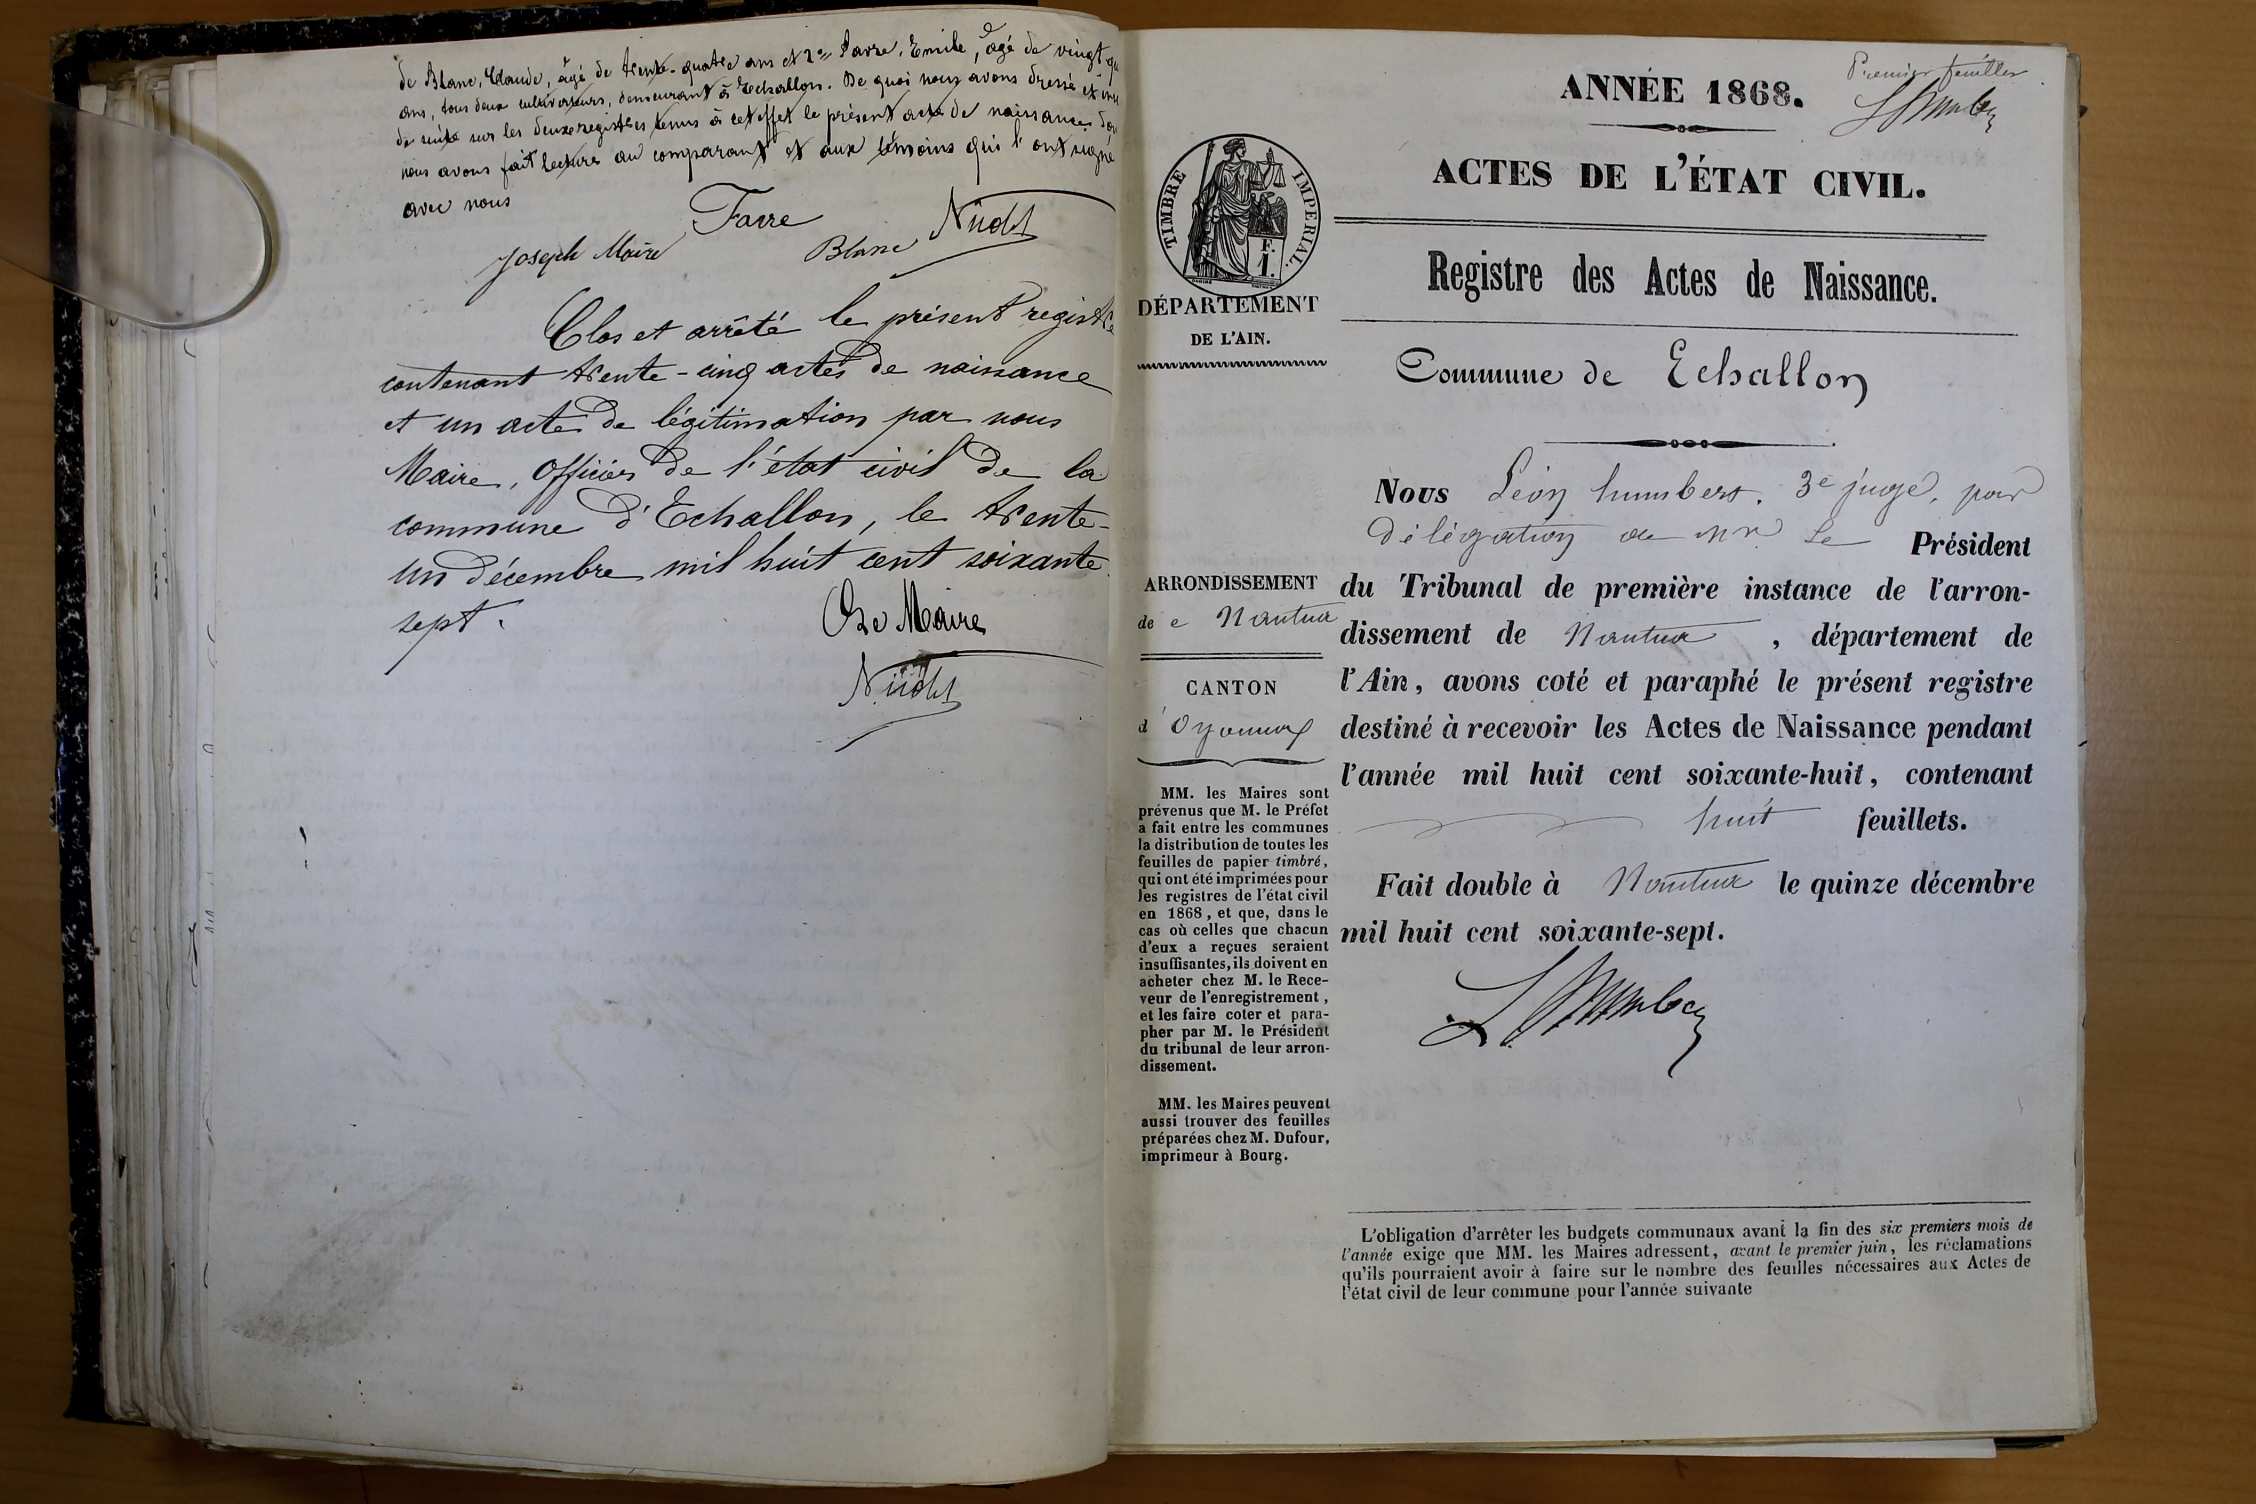 de Blanc, Claude, âgé de trente-quatre ans et 2° Favre, Emile, âgé de vingt
ans, tous deux cultivateurs, demeurant à Echallon. De quoi nous avons dressé et
de suite sur les deux registres tenus à cet effet le présent acte de naissance
nous avons fait lecture au comparant et aux témoins qui l'ont signé
avec nous
Favre
Joseph Maire Blanc
Clos et arrêté le présent registre
contenant trente-cinq actes de naissance
et un acte de légitimation par nous
Maire, Officier de l'état civil de la
commune d'Echallon, le trente-
un décembre mil huit cent soixante
sept.
Le Maire
Premier feuillet
ANNÉE 1868.
ACTES DE L'ÉTAT CIVIL.
Registre des Actes de Naissance.
Commune de Echallon
TIMBRE IMPERIAL.
DÉPARTEMENT
DE L'AIN.
ARRONDISSEMENT
de Nantua
CANTON
d'Oyonnax
MM. les Maires sont
prévenus que M. le Préfet
a fait entre les communes
la distribution de toutes les
feuilles de papier timbré,
qui ont été imprimées pour
les registres de l'état civil
en 1868, et que, dans le
cas où celles que chacun
d'eux a reçues seraient
insuffisantes, ils doivent en
acheter chez M. le Rece-
veur de l'enregistrement,
et les faire coter et para-
pher par M. le Président
du tribunal de leur arron-
dissement.
MM. les Maires peuvent
aussi trouver des feuilles
préparées chez M. Dufour,
imprimeur à Bourg.
Nous Léon humbert, 3e juge, par
délégation de Mr le Président
du Tribunal de première instance de l'arron-
dissement de Nantua, département de
l'Ain, avons coté et paraphé le présent registre
destiné à recevoir les Actes de Naissance pendant
l'année mil huit cent soixante-huit, contenant
huit feuillets.
Fait double à Nantua le quinze décembre
mil huit cent soixante-sept.
L. Humbert
L'obligation d'arrêter les budgets communaux avant la fin des six premiers mois de
l'année exige que MM. les Maires adressent, avant le premier juin, les réclamations
qu'ils pourraient avoir à faire sur le nombre des feuilles nécessaires aux Actes de
l'état civil de leur commune pour l'année suivante